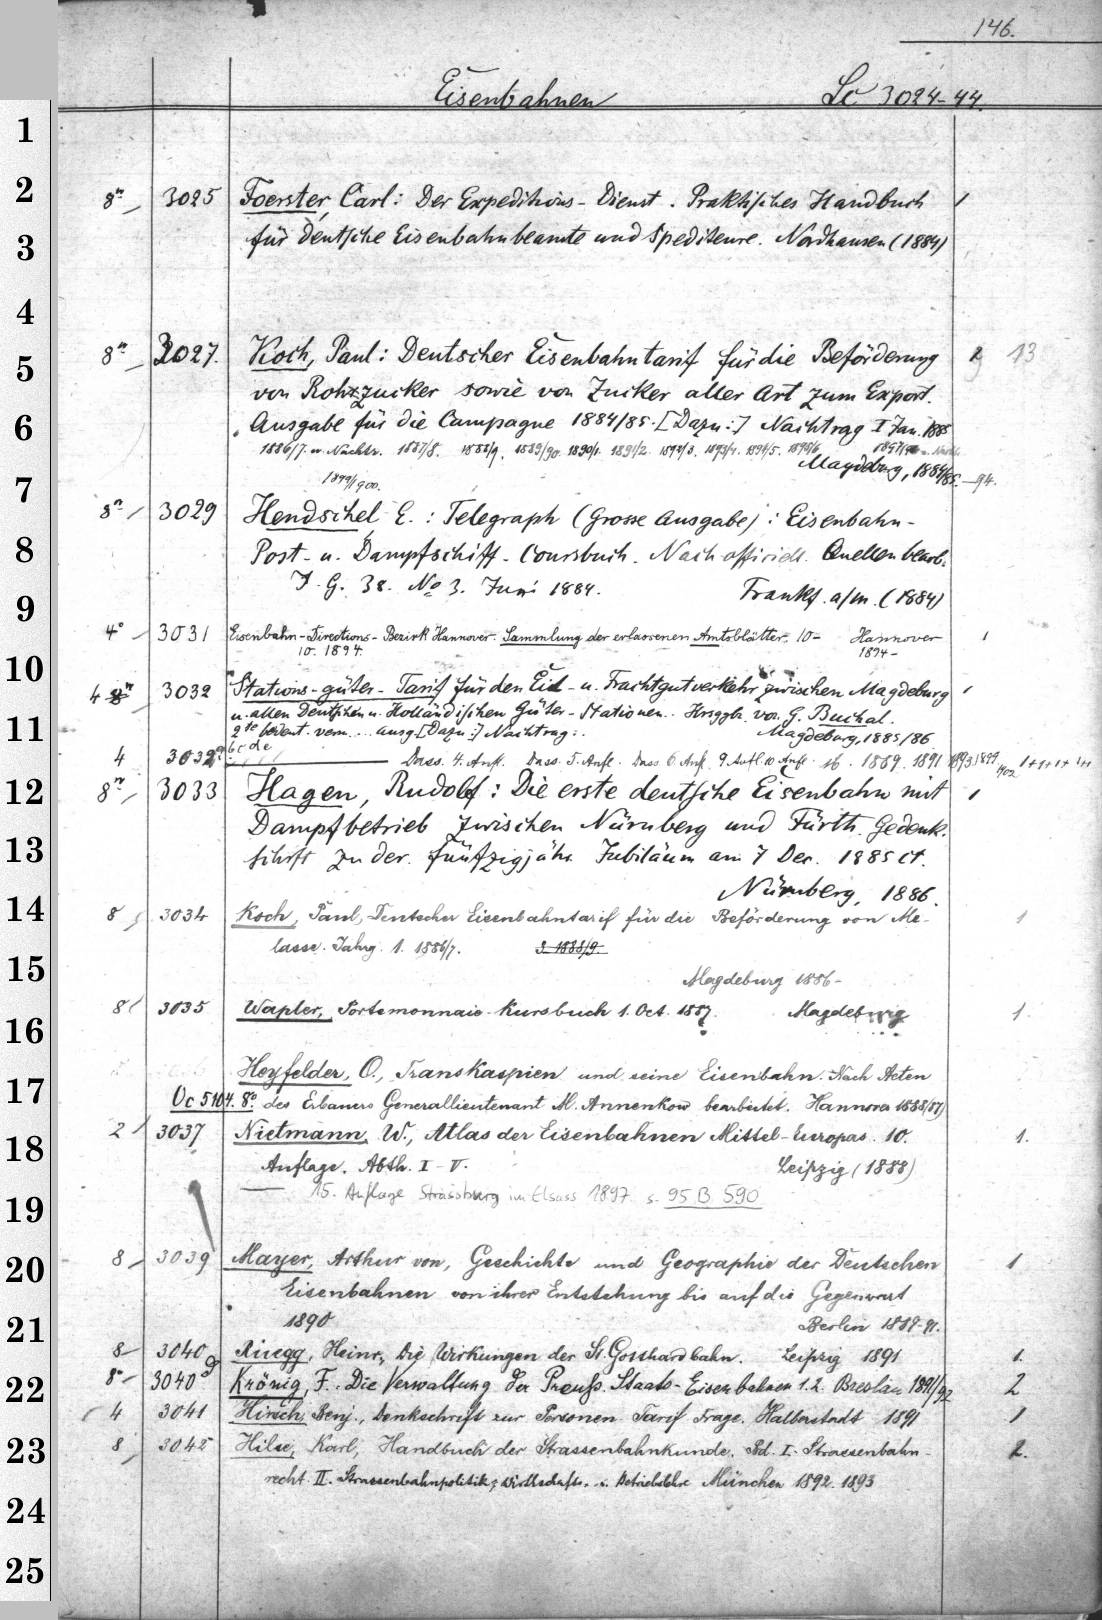 146.
Eisenbahnen Sc 3024-44.
1
2
3
4
5
6
7
8
9
10
11
12
13
14
15
16
17
18
19
20
21
22
23
24
25
8° 3025 Foerster, Carl: Der Expeditions-Dienst. Praktisches Handbuch 1
für deutsche Eisenbahnbeamte und Spediteure. Nordhausen (1884)
8° 3027. Koch, Paul: Deutscher Eisenbahntarif für die Beförderung 13
von Rohzucker sowie von Zucker aller Art zum Export.
Ausgabe für die Campagne 1884/85. [Dazu:] Nachtrag I Jan. 1885
1886/7. u. Nachtr. 1887/8. 1888/9. 1889/90. 1890/1. 1891/2. 1892/3. 1893/4. 1894/5. 1895/6.
Magdeburg, 1884/85.-94.
1899/1900.
8° 3029 Hendschel E.: Telegraph (Grosse Ausgabe): Eisenbahn-
Post- u. Dampfschiff-Coursbuch. Nach officiell. Quellen bearb.
J. G. 38. No 3. Juni 1884. Frankf. a/m. (1884)
4° 3031 Eisenbahn-Directions-Bezirk Hannover. Sammlung der erlassenen Amtsblätter. 10- Hannover 1
10. 1894. 1894-
4 3032 Stations-güter-Tarif für den Eil- u. Frachtgutverkehr zwischen Magdeburg 1
u. allen Deutschen u. Holländischen Güter-Stationen. Hrsggb. von G. Buchal.
2te bedeut. verm. ... Ausg. [Dazu:] Nachtrag:. Magdeburg, 1885/86
4 3032a b c d e Dass. 4. Aufl. Dass. 5. Aufl. Dass. 6. Aufl. 9. Aufl. 10. Aufl. 16. 1889. 1891 1893. 1899
8° 3033 Hagen, Rudolf: Die erste deutsche Eisenbahn mit 1
Dampfbetrieb zwischen Nürnberg und Fürth. Gedenk-
schrift zu der fünfzigjähr. Jubiläum am 7 Dec. 1885 ct.
Nürnberg, 1886.
8 3034 Koch, Paul, Deutscher Eisenbahntarif für die Beförderung von Me- 1
lasse. Jahrg. 1. 1886/7. 3. 1888/9.
Magdeburg 1886-
8 3035 Wapler, Portemonnaie-Kursbuch 1. Oct. 1887. Magdeburg 1.
Heyfelder, O., Transkaspien und seine Eisenbahn. Nach Acten
Uc 5104. 8° des Erbauers Generallieutenant M. Annenkow bearbeitet. Hannover 1888(87)
2 3037 Nietmann, W., Atlas der Eisenbahnen Mittel-Europas. 10. 1.
Auflage. Abth. I-V. Leipzig (1888)
— 15. Auflage Strassburg im Elsass 1897 s. 95 B 590
8 3039 Mayer, Arthur von, Geschichte und Geographie der Deutschen 1
Eisenbahnen von ihrer Entstehung bis auf die Gegenwart
1890 Berlin 1889-91.
8 3040 Rüegg, Heinr., Die Wirkungen der St. Gotthardbahn. Leipzig 1891 1.
8° 3040a Krönig, F.: Die Verwaltung der Preuß. Staats-Eisenbahnen 1.2. Breslau 1891/92 2
4 3041 Hirsch, Benj., Denkschrift zur Personen-Tarif-Frage. Halberstadt 1891 1
8 3042 Hilse, Karl, Handbuch der Strassenbahnkunde. Bd. I. Strassenbahn- 2.
recht. II. Strassenbahnpolitik, Wirthschafts- u. Betriebslehre München 1892. 1893